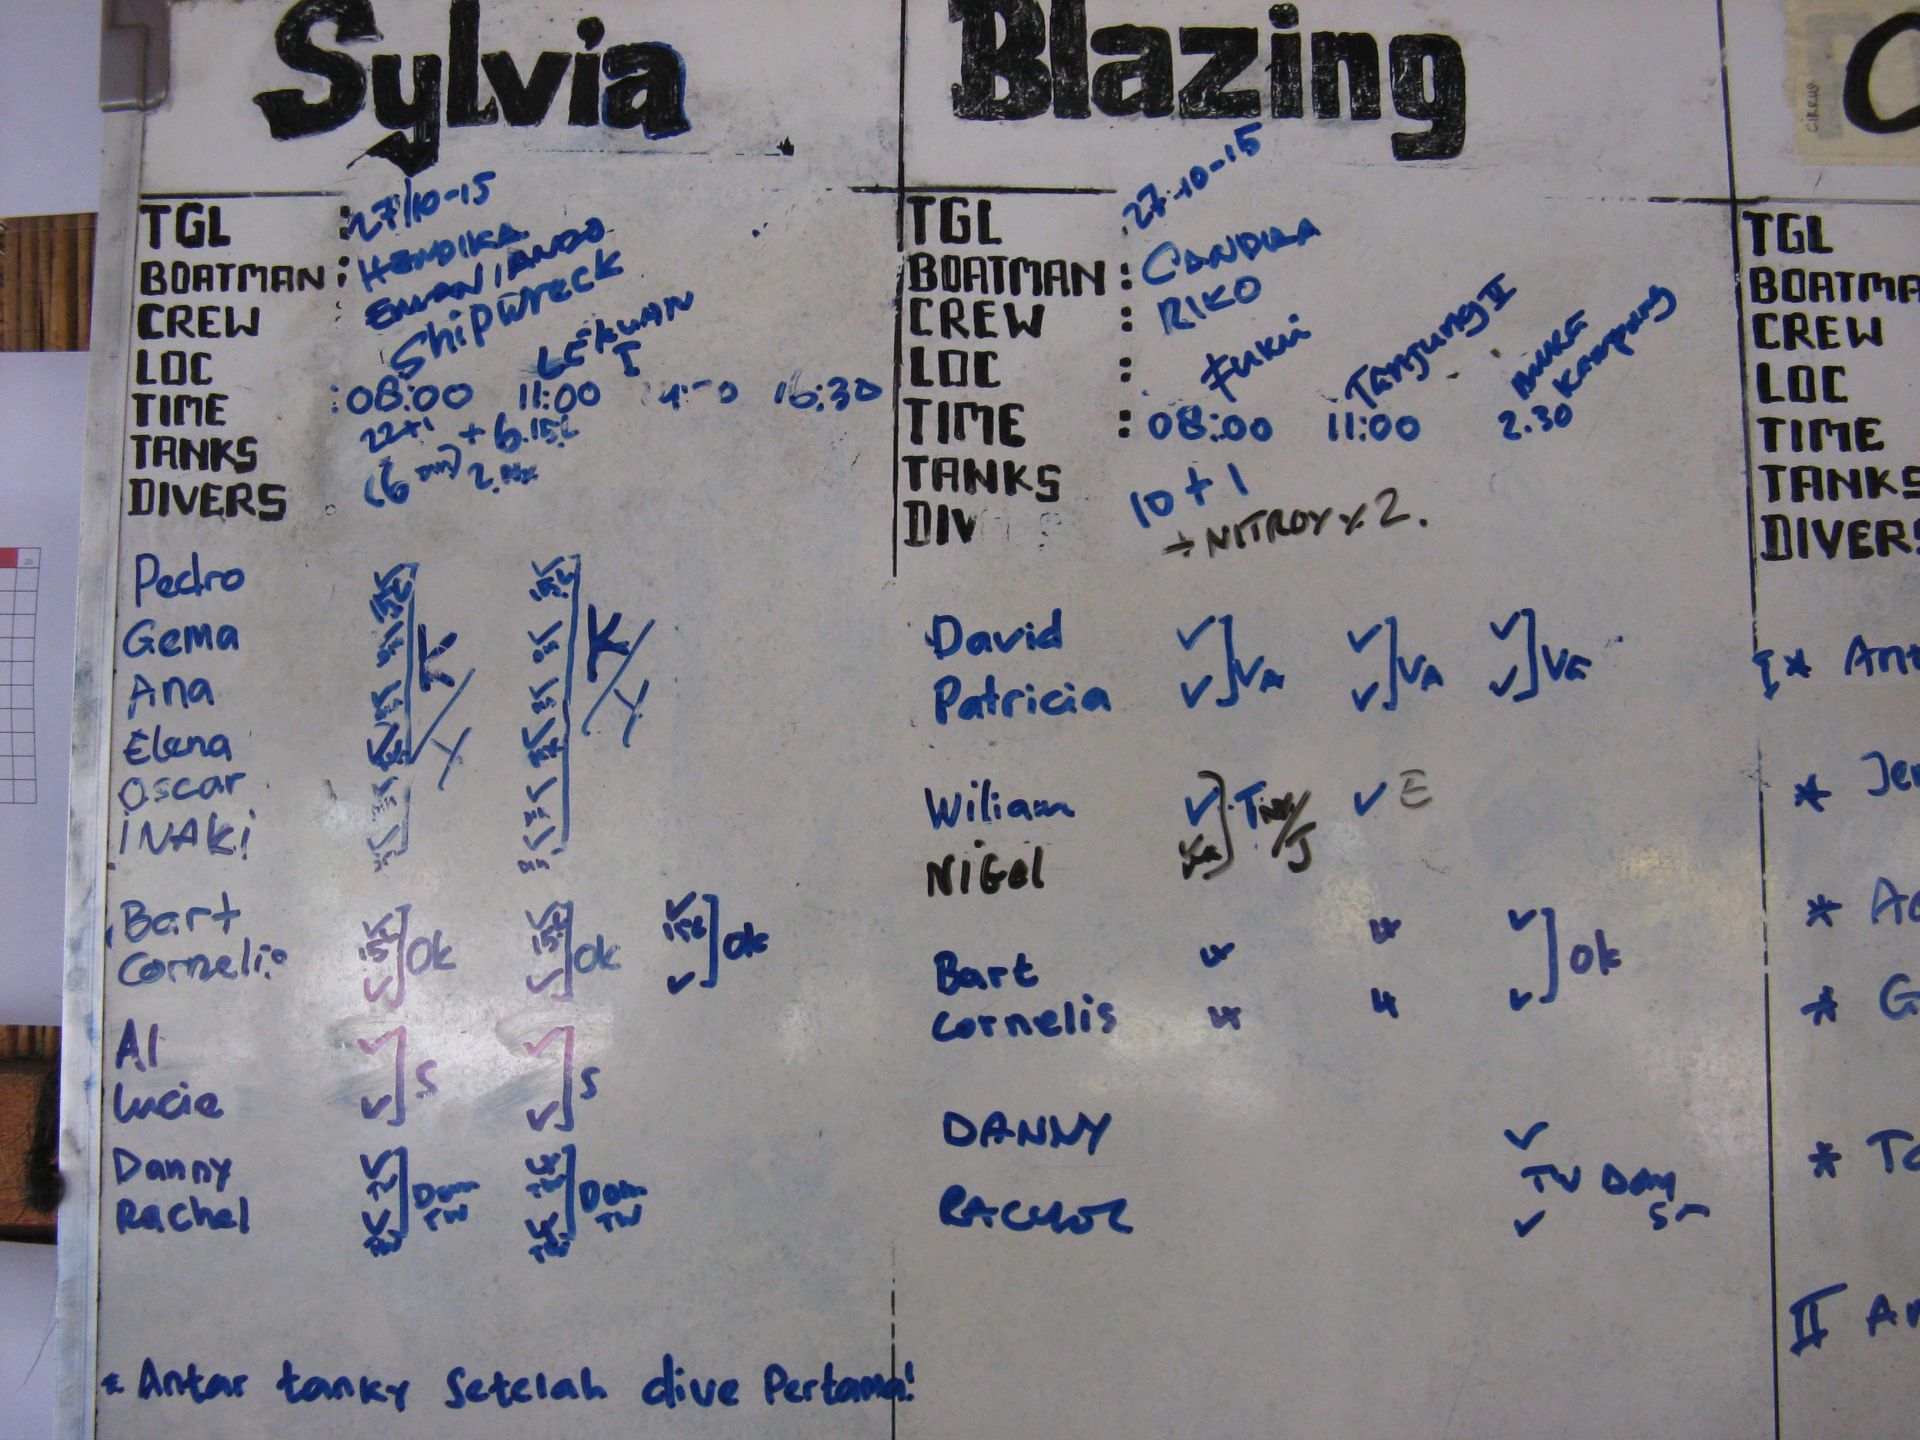 Sylvia
TGL : 27/10-15
BOATMAN : HENDIKA
CREW
LOC Shipwreck LEKUAN I
TIME : 08:00 11:00 16:30
TANKS 22+1 + 6.15L
DIVERS (6 Din) 2.Nx
Pedro 15L 15L
Gema
Ana
Elena
Oscar
iNAKi
K/Y K/Y
Bart 15L 15L 15L
Cornelis
Ok Ok Ok
Al
Lucie
S S
Danny TW TW
Rachel TW TW
Dom TW Dom TW
* Antar tanky Setelah dive Pertama!
Blazing
TGL 27-10-15
BOATMAN : CANDRA
CREW : RIKO
LOC : Fukui Tanjung II MUKA Kampung
TIME : 08:00 11:00 2.30
TANKS 10+1
DIV + NITROX x 2.
David
Patricia
VA VA VA
Wiliam ✓ ✓ E
NiGel
Bart
Cornelis
Ok
DANNY ✓
TW
RACHEL ✓
CIRRUS
C
TGL
BOATMA
CREW
LOC
TIME
TANKS
DIVERS
I * Ant
* Jer
* G
II